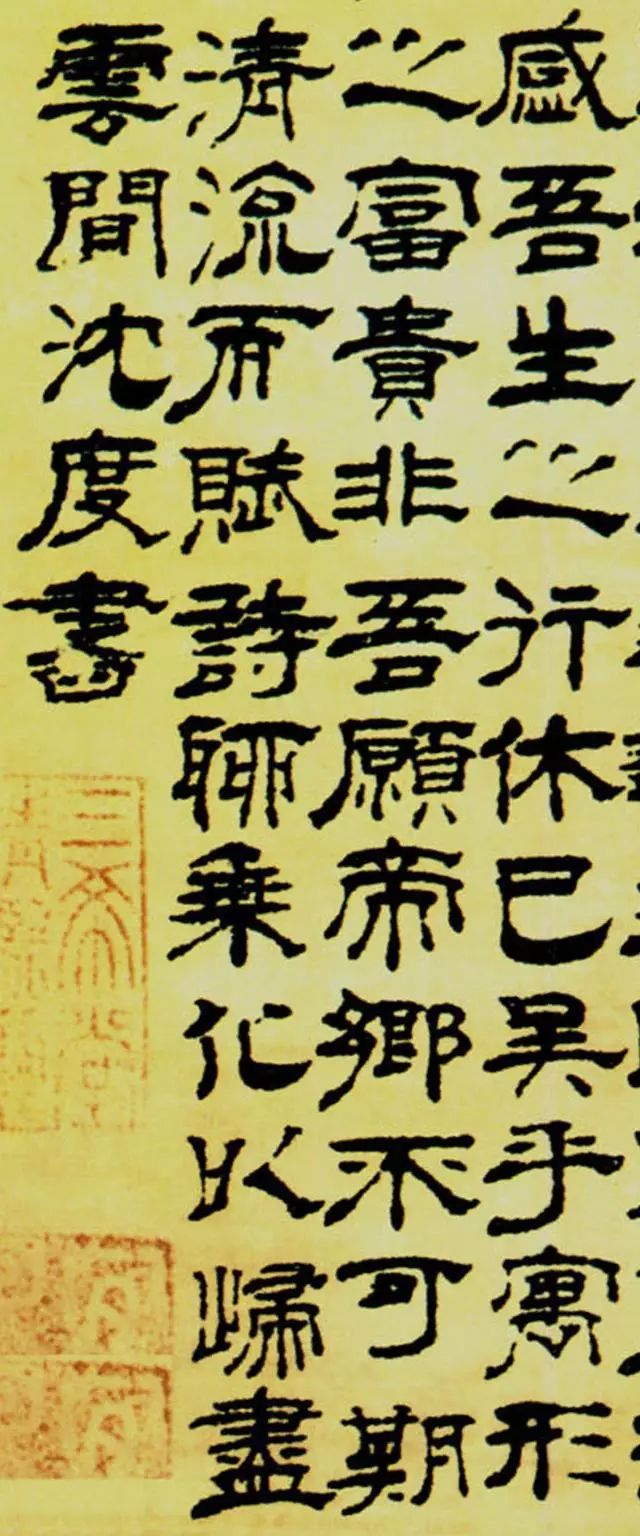 感吾生之行休已矣乎寓形
之富貴非吾願帝鄉不可期
清流而賦詩聊乘化以歸盡
雲間沈度書
三希堂